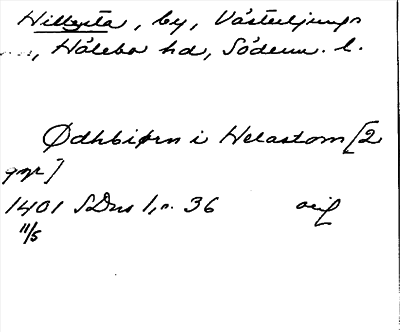 Hillesta, by, Västerljungs
..., Hölebo hd, Söderm. l.
Ødhbiørn i Helastom [2
ggr]
1401 SDns 1, n. 36 orig
11/5